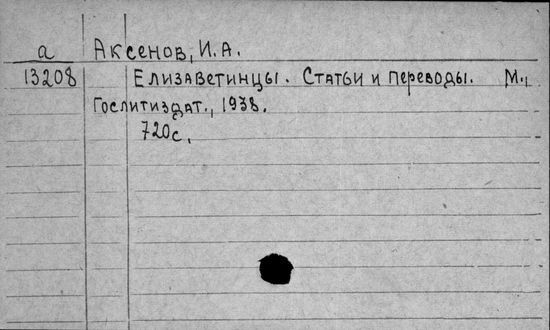 а Аксенов, И.А.
13208 Елизаветинцы. Статьи и переводы. М.,
Гослитиздат., 1938.
720с.